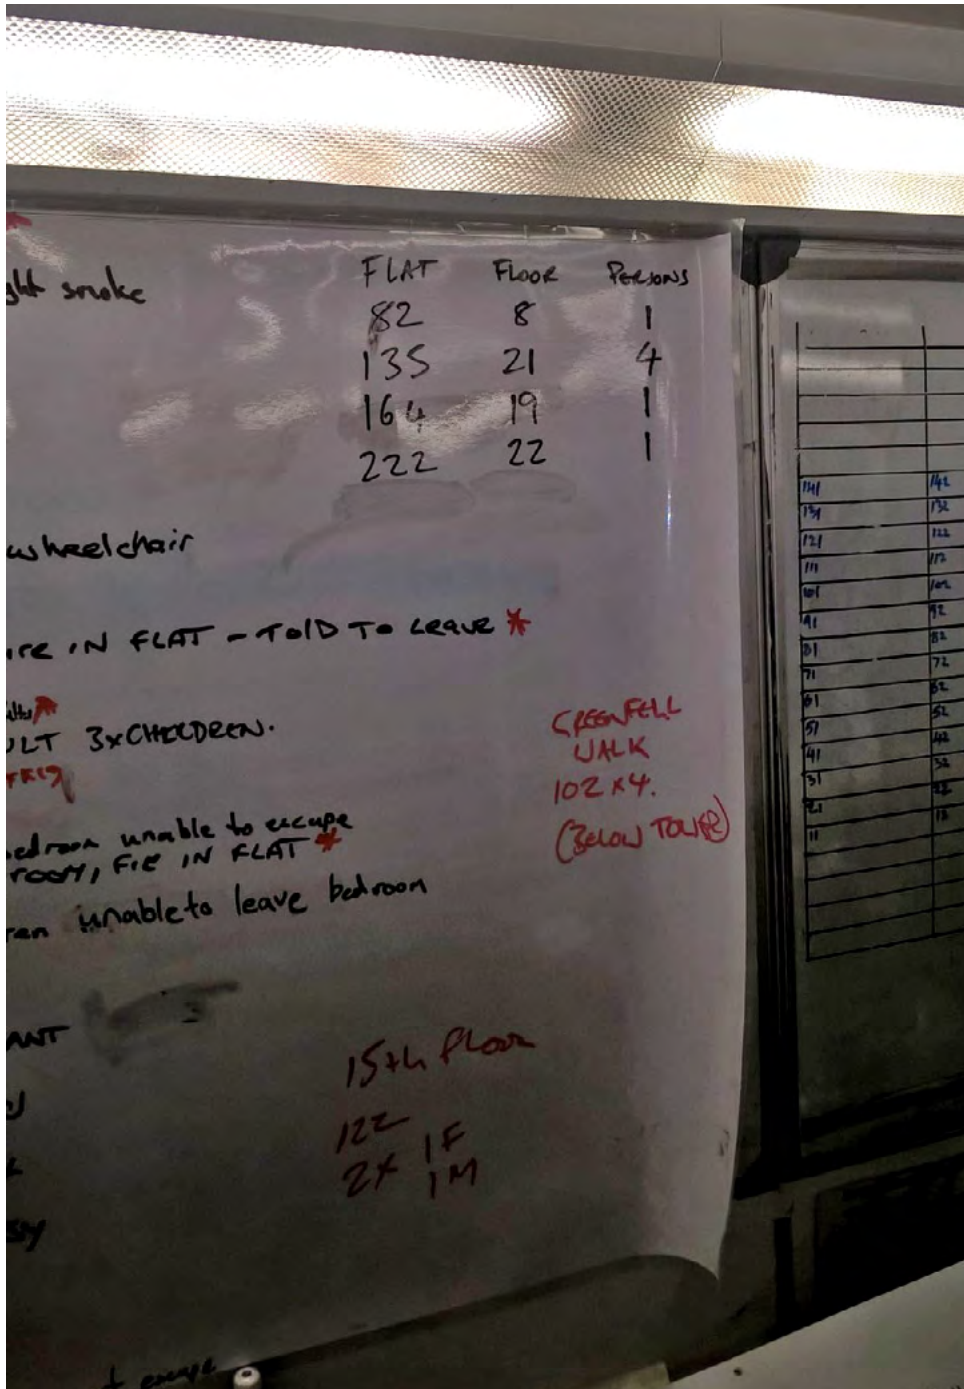 smoke
FLAT FLOOR PERSONS
82 8 1
135 21 4
164 19 1
222 22 1
wheelchair
IN FLAT - TOLD TO LEAVE *
3xCHEELDREN.
GREENFELL
WALK
102 x4.
(BELOW TOWER)
bedroom unable to escape
FIE IN FLAT *
unable to leave bedroom
15th floor
122
2x 1F
1M
141 142
131 132
121 122
111 112
101 102
91 92
81 82
71 72
61 62
51 52
41 42
31 32
21 22
11 12